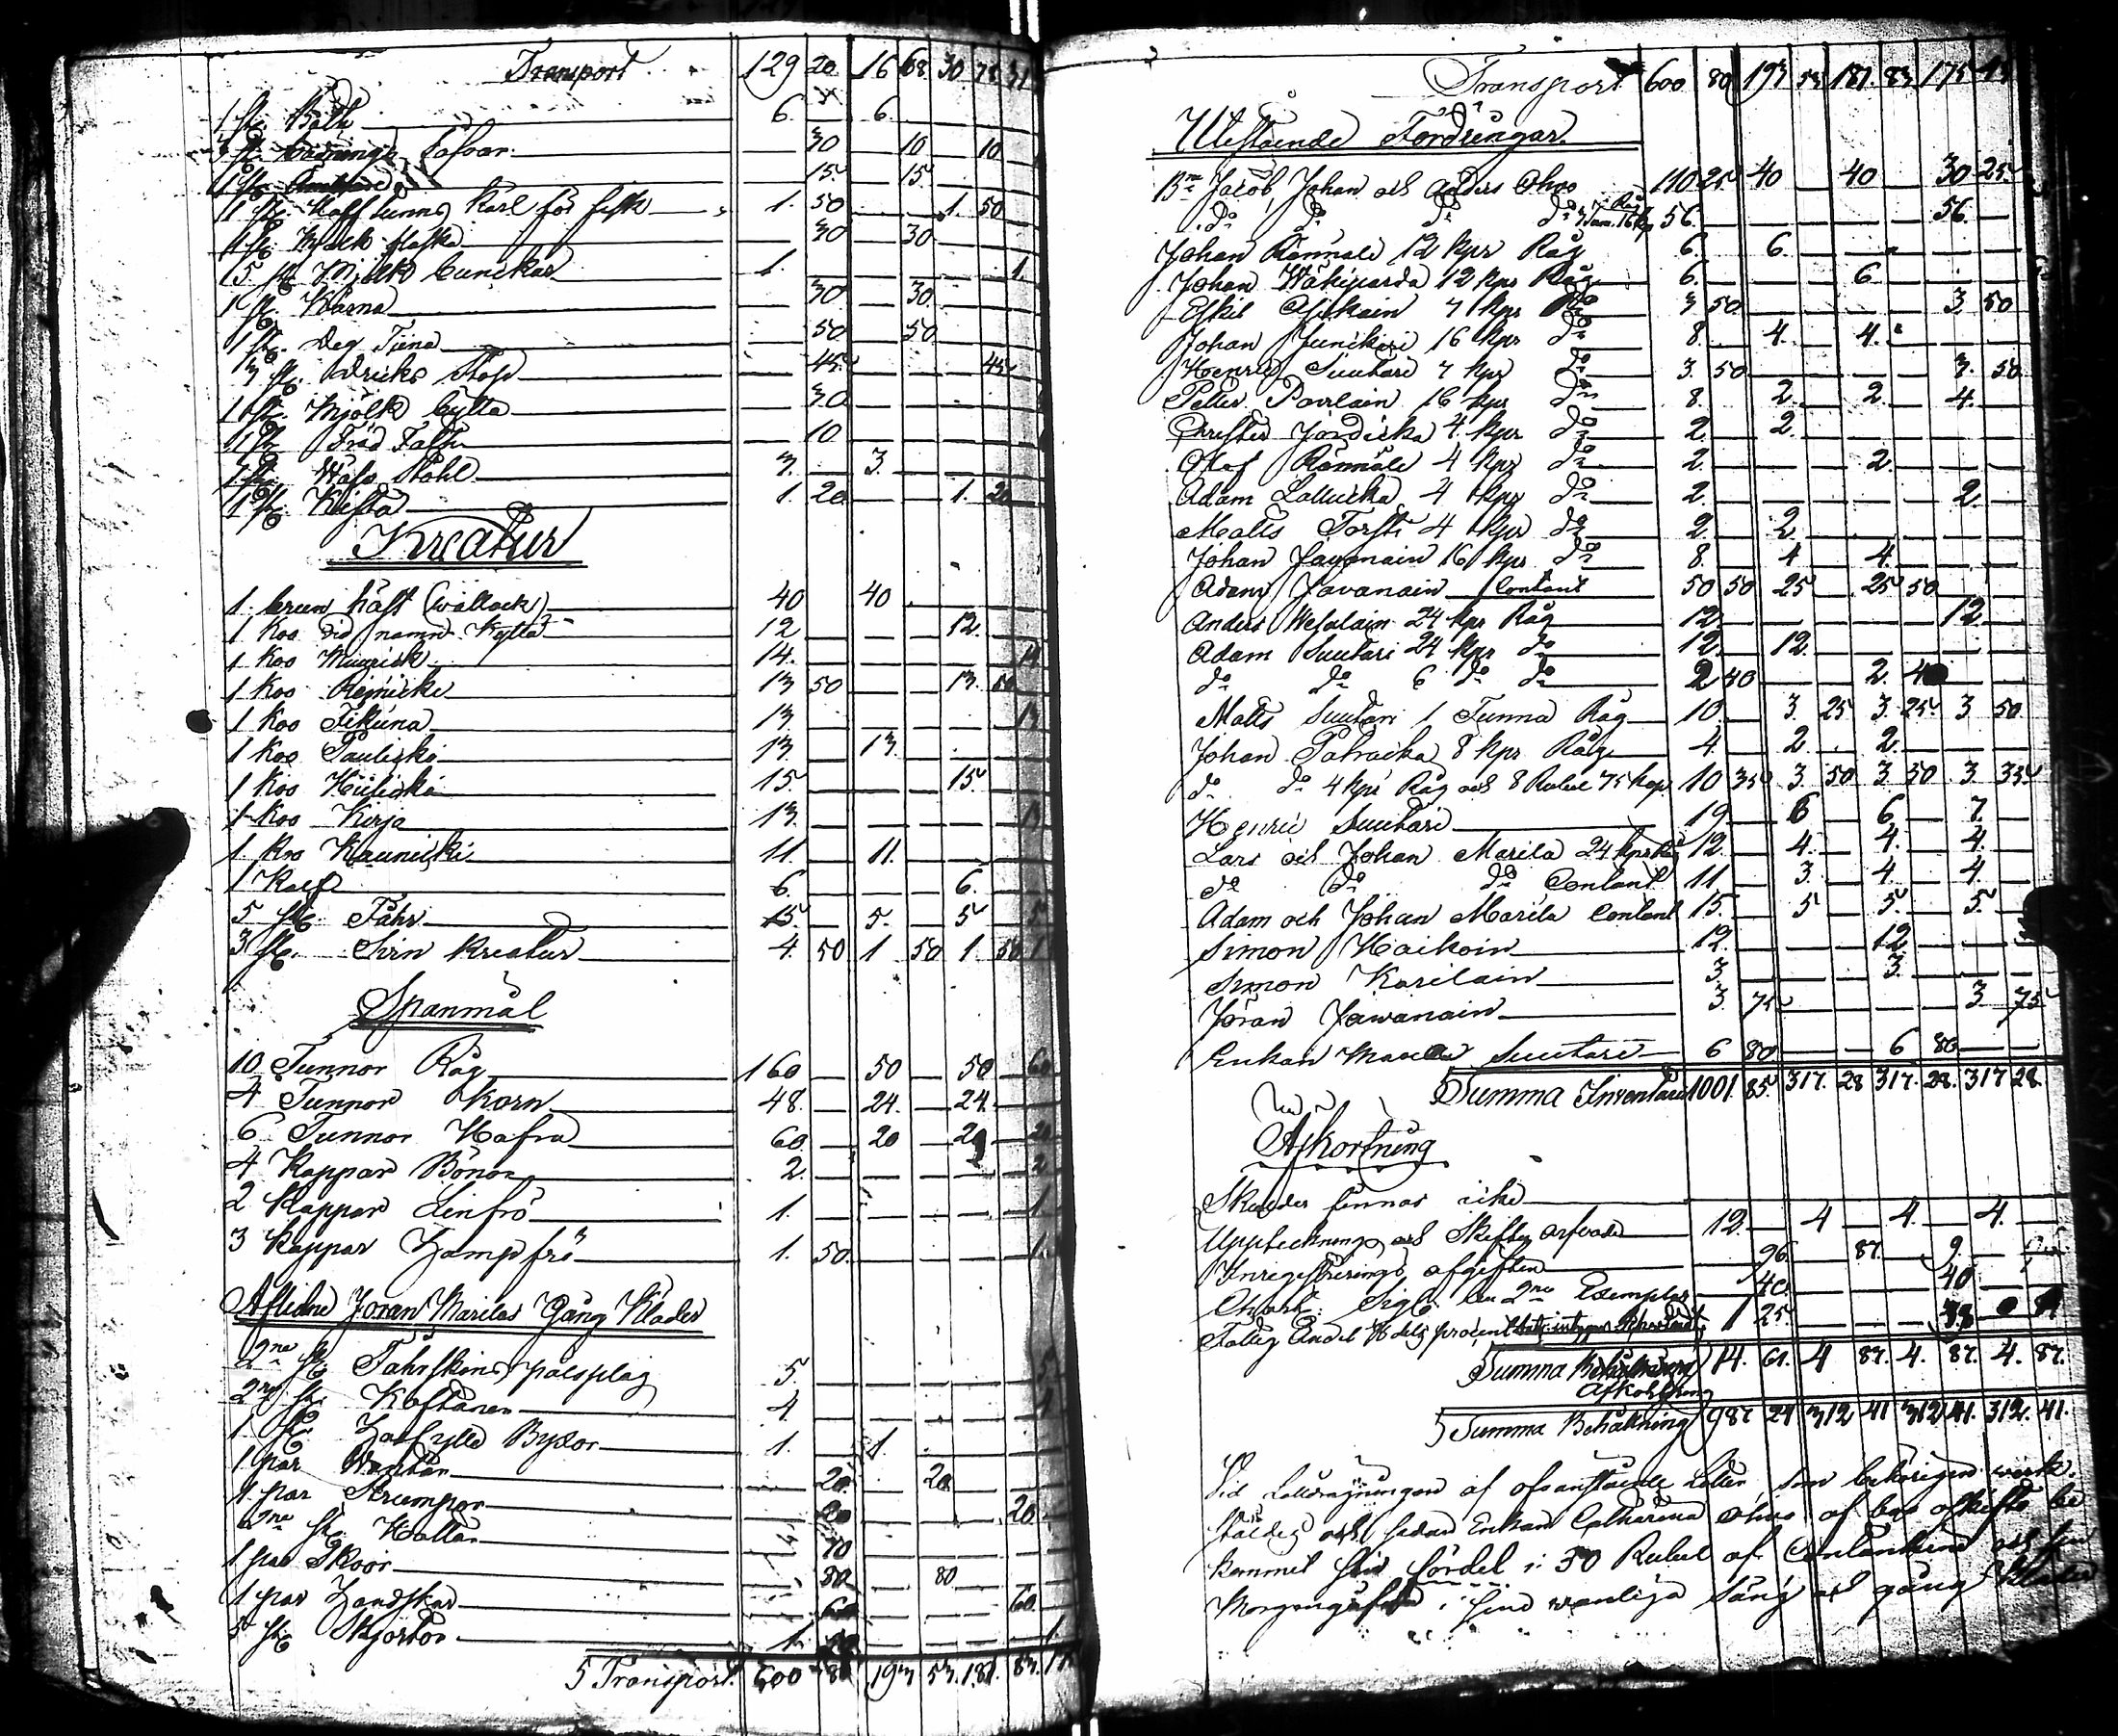 Transport 129 20 16 68 30 78 31
1 st. Bytk 6 6
3 st. Tafvor 30 10 10
1 st. 15 15
11 st. Kaff Tunnor Karl för fisk 1. 50 1. 50
1 st. Mjölk flaska 30 30
15 st. Mjölk bunckar 1. 1.
1 st. Kärna 30 30
1 st. Deg Tina 50 50
3 st. Dricks Stop 45 45
1 st. Mjölk bytta 30
1 st. Träd Fat 10
1 st. Wäfs Stohl 3. 3.
1 st. Kista 1. 20 1. 20
Kreatur
1. brun häst (wallack) 40 40
1 Koo vid namn Kyltä 12 12.
1 Koo Muurick 14. 14
1 Koo Rejnicki 13 50 13. 50
1 Koo Tikuna 13 13
1 Koo Paulicki 13 13.
1 Koo Huilicki 15. 15
1 Koo Kirjo 13. 13
1 Koo Kaunicki 11. 11.
1 Kalf 6. 6.
5 st. Fåhr 15. 5. 5 5
3 st. Svin kreatur 4. 50 1 50 1. 50 1
Spanmål
10 Tunnor Råg 160 50 50 60
4 Tunnor Korn 48. 24. 24.
6 Tunnor Hafra 60 20 20 20
4 Kappar Bönor 2. 2
2 Kappar Linfrö 1. 1
3 Kappar Hampfrö 1. 50. 1.
Aflidne Jöran Marilas Gång Kläder
2ne st. Fåhrskins pälsplag 5. 5
2ne st. Kaftaner 4 4
1 st. Byxor 1. 1.
1 par Wantar 20. 20
1. par Strumpor 20 20
2ne st. Hattar 70
1 par Skoor 80 80
1 par Handskar 60 60.
5 st. Skjortor 1. 1
Transport. 600 80 193 53. 181. 83. 175
Transport 600 80 193 53 181. 83. 175 45
Utestående Fordringar
Bne Jacob, Johan och Anders Ohvo 110 25 40 40 30 25
do do do do Råg 3 Tun. 16 kpr 56. 56.
Johan Rämmäle 12 kpr Råg 6. 6.
Johan Wäkiparda 12 kpr Råg 6. 6.
Eskil Asikain 7 kpr do 3 50 3. 50
Johan Junikiri 16 kpr do 8. 4. 4.
Henric Suutari 7 kpr do 3. 50 3. 50
Petter Pavilain 16 kpr do 8. 2. 2. 4.
Christer Jordicka 4 kpr do 2. 2.
Olof Rämmäle 4 kpr do 2. 2.
Adam Lallucka 4 kpr do 2. 2.
Matts Torsti 4 kpr do 2 2.
Johan Javanain 16 kpr do 8. 4 4.
Adam Javanain Contant 50 50 25 25 50
Anders Wesalain 24 kpr Råg 12. 12
Adam Suutari 24 kpr do 12 12.
do do 6 do do 2 40 2. 40
Matts Suutari 1 Tunna Råg 10. 3. 25 3. 25. 3 50
Johan Patracka 8 kpr Råg 4. 2. 2.
do do 4 kpr Råg och 8 Rubel 75 kop. 10 35 3. 50 3. 50 3. 35
Henric Suutari 19. 6 6. 7.
Lars och Johan Marila 24 kpr Råg 12. 4. 4. 4.
do do do Contant 11 3. 4. 4.
Adam och Johan Marila Contant 15. 5 5. 5.
Simon Haikoin 12. 12
Simon Karilain 3. 3.
Jöran Jawanain 3. 75 3 75
Enkan Maria Suutari 6 80 6 80
Summa Inventarii 1001. 85. 317. 28 317. 28. 317 28.
Afkortning
Skulder finnas icke
Uppteckning och Skiftes arfvode 12. 4 4. 4.
Inregistrerings afgiften 96 87. 9.
Chart: Sigl: an 2ne Exemplar 40. 40
Fattig Andel ⅛ dels procent 1 25
Summa Afkortning 14. 61. 4 87. 4. 87. 4. 87.
Summa Behållning 987 24 312 41 312 41. 312. 41.
Vid Lottdragningen af ofvanstående Lotter, som behörigen werk-
stäldes och sedan Enkan Catharina Ohvo af boo oskifto be
kommit sin fördel i 30 Rubel af Contanterne och sin
Morgongåfva i sine wanliga Säng och gång Kläder